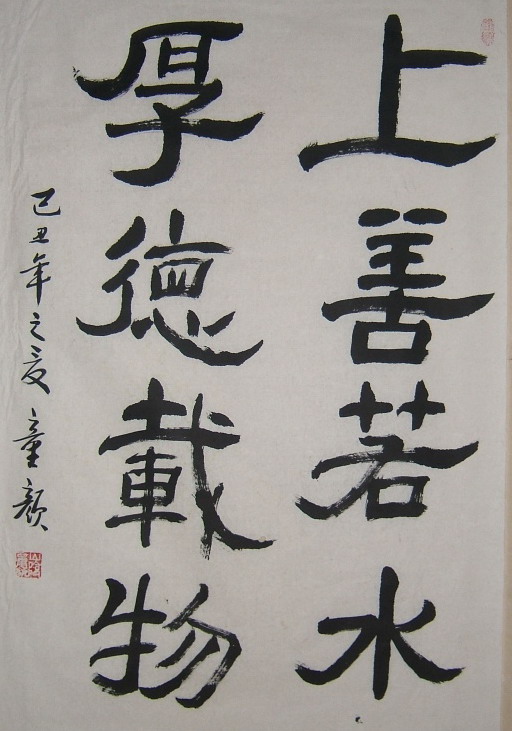 上善若水
厚德載物
己丑年之夏童顏